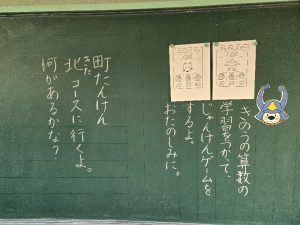 きのうの算数の
学習をつかって、
じゃんけんゲームを
するよ。
おたのしみに。
町たんけん
北コースに行くよ。
きた
何があるかな？